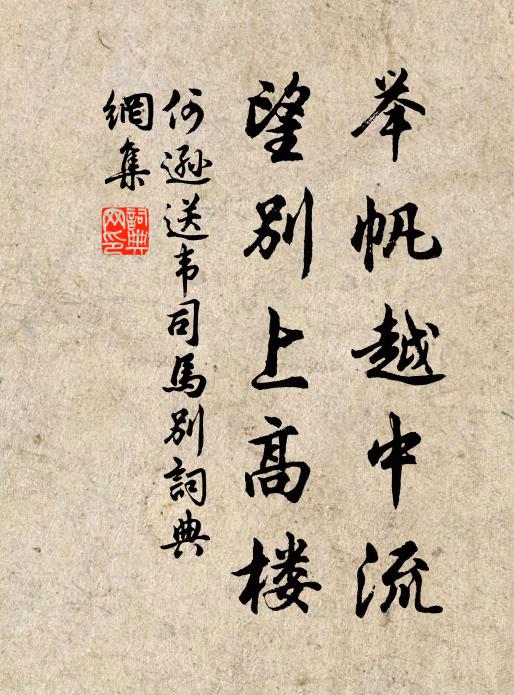 举帆越中流
望别上高楼
何遜送韦司馬别詞典
網集
詞典
网印